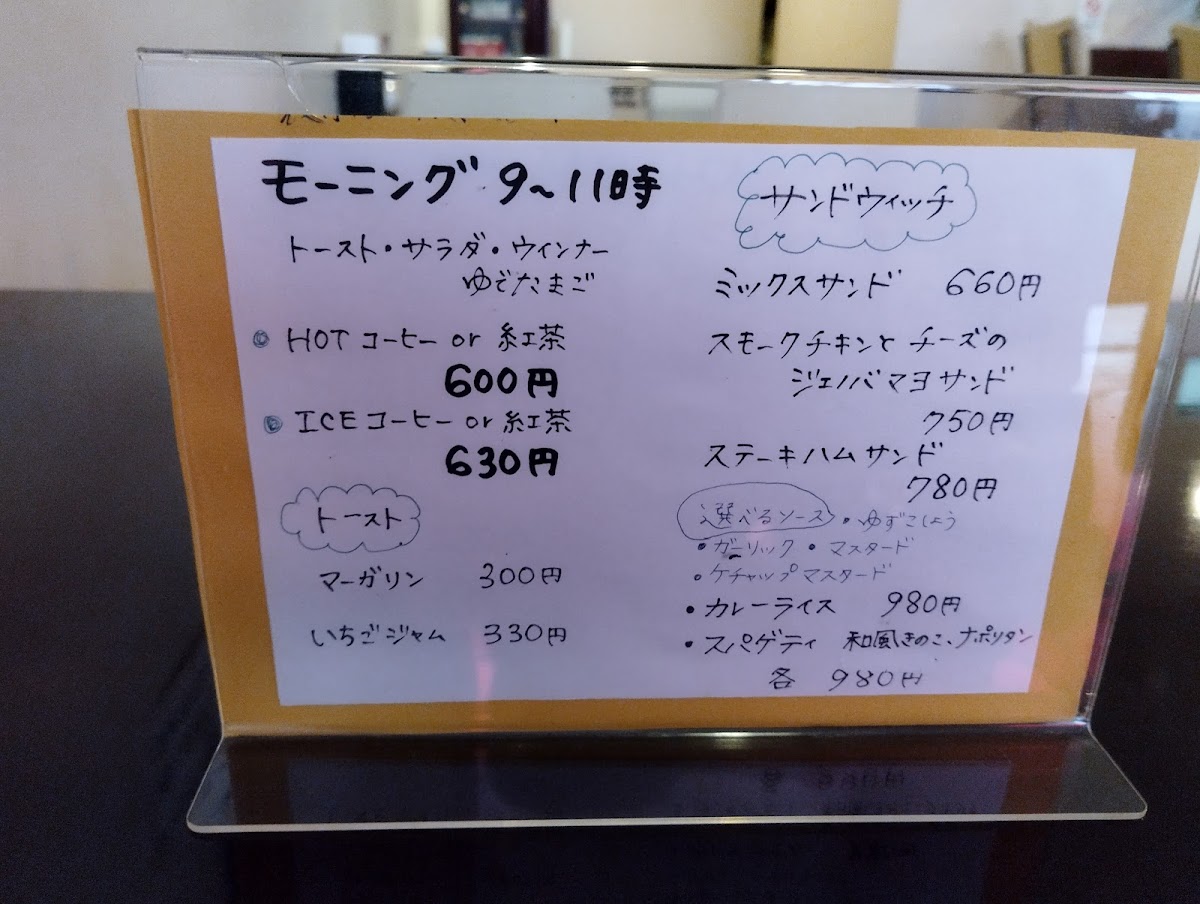 モーニング 9〜11時
トースト・サラダ・ウィンナー
ゆでたまご
HOT コーヒー or 紅茶
600円
ICE コーヒー or 紅茶
630円
トースト
マーガリン 300円
いちごジャム 330円
サンドウィッチ
ミックスサンド 660円
スモークチキンと チーズの
ジェノバマヨサンド
750円
ステーキハムサンド
780円
選べるソース ・ゆずこしょう
・ガーリック ・マスタード
・ケチャップマスタード
・カレーライス 980円
・スパゲティ 和風きのこ、ナポリタン
各 980円